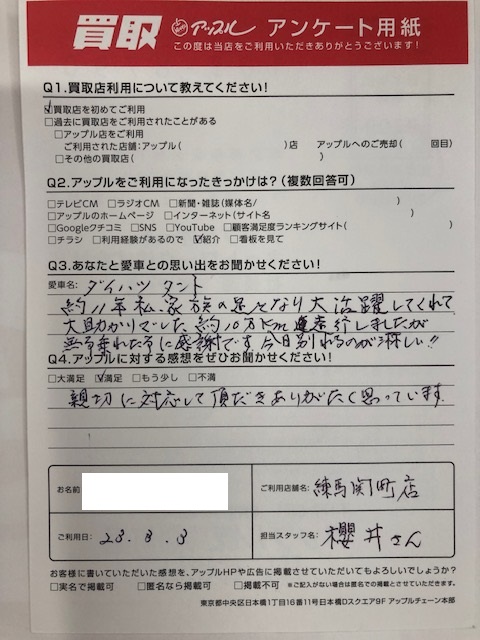 買取 アップル アンケート用紙
この度は当店をご利用いただきありがとうございます!
Q1.買取店利用について教えてください!
☑買取店を初めてご利用
□過去に買取店をご利用されたことがある
□アップル店をご利用
ご利用された店舗:アップル( )店 アップルへのご売却( 回目)
□その他の買取店( )
Q2.アップルをご利用になったきっかけは?(複数回答可)
□テレビCM □ラジオCM □新聞・雑誌(媒体名/ )
□アップルのホームページ □インターネット(サイト名 )
□Googleクチコミ □SNS □YouTube □顧客満足度ランキングサイト( )
□チラシ □利用経験があるので ☑紹介 □看板を見て
Q3.あなたと愛車との思い出をお聞かせください!
愛車名: ダイハツ タント
約11年私、家族の足となり大活躍してくれて
大助かりでした 約10万km 走行しましたが
無事乗れた事に感謝です 今日別れるのが淋しい!!
Q4.アップルに対する感想をぜひお聞かせください!
□大満足 ☑満足 □もう少し □不満
親切に対応して頂だきありがたく思っています.
お名前
ご利用店舗名: 練馬関町店
ご利用日: 23.8.3
担当スタッフ名: 櫻井さん
お客様に書いていただいた感想を、アップルHPや広告に掲載させていただいてもよろしいでしょうか?
□実名で掲載可 □匿名なら掲載可 □掲載不可 ※ご記入がない場合は匿名での掲載とさせていただきます。
東京都中央区日本橋1丁目16番11号日本橋Dスクエア9F アップルチェーン本部